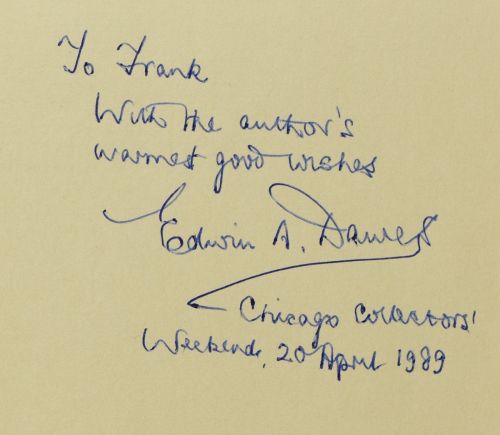 To Frank
With the author's
warmest good wishes
Edwin A. Dawes
Chicago Collectors'
Weekend, 20 April 1989